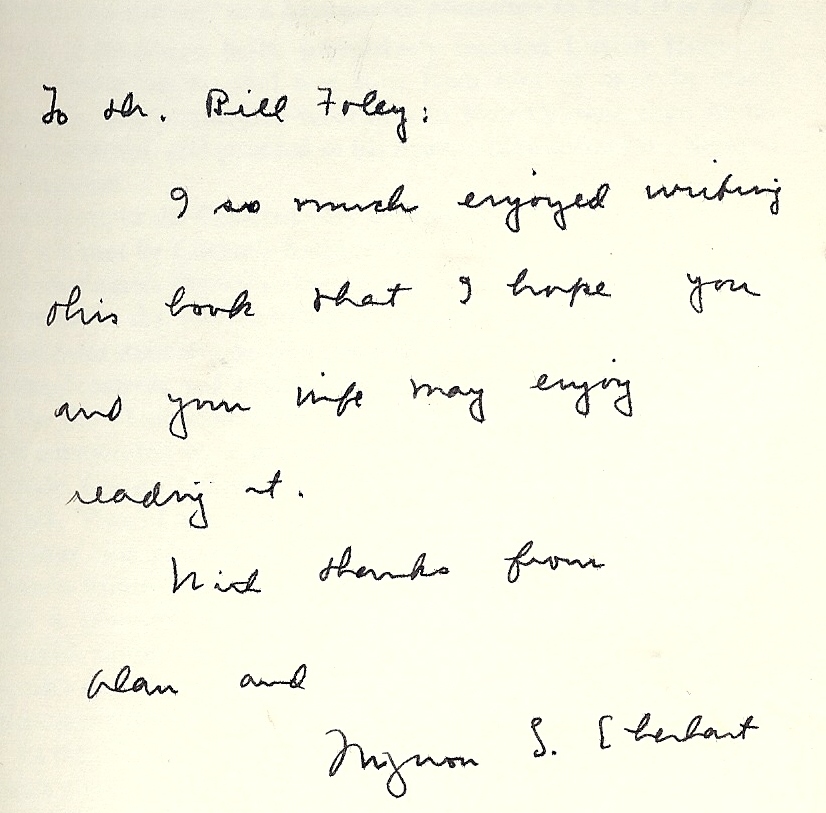 To Dr. Bill Foley:
I so much enjoyed writing
this book that I hope you
and your wife may enjoy
reading it.
With thanks from
Alan and
Mignon G. Eberhart